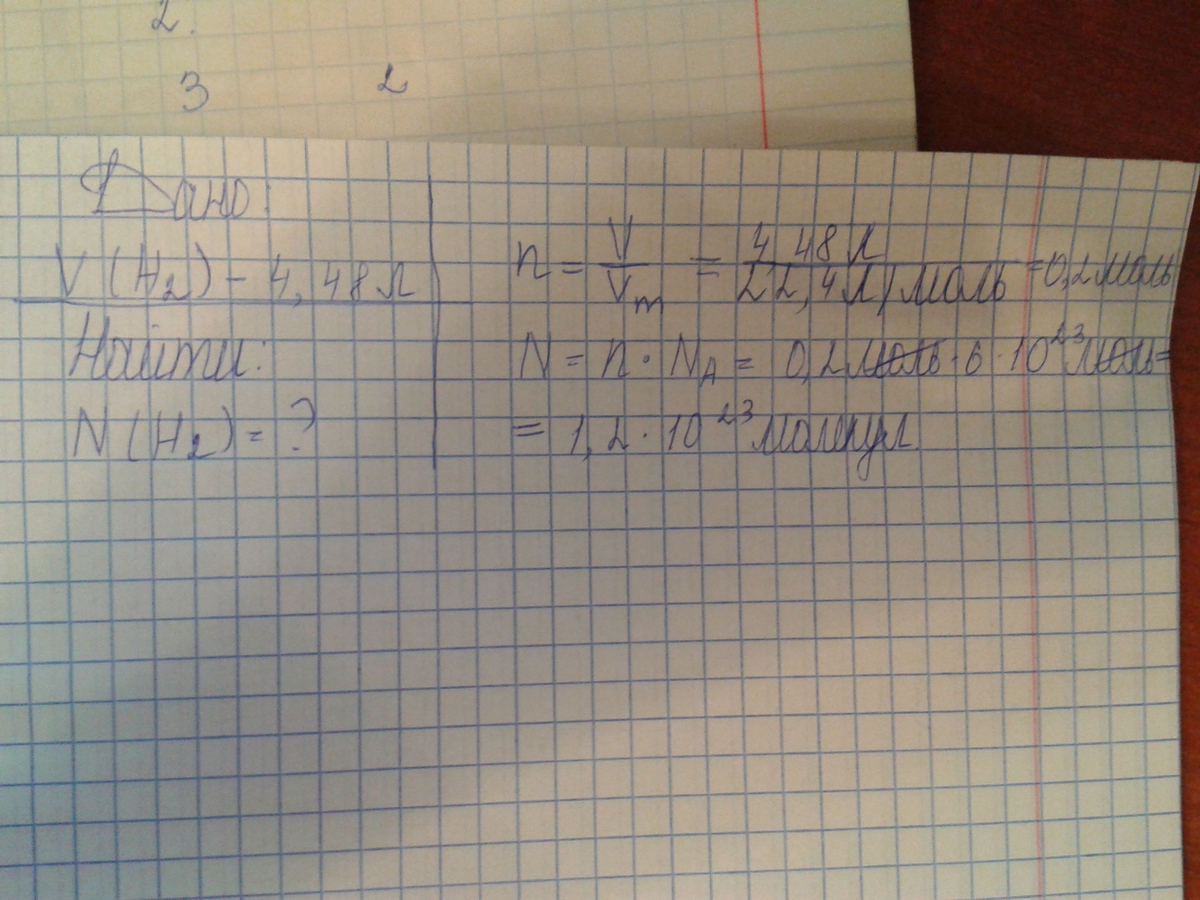 2.
3 2
Дано:
V (H₂) – 4,48 л
Найти:
N (H₂) = ?
n = V/Vm = 4,48 л / 22,4 л/моль = 0,2 моль
N = n · NA = 0,2 моль · 6 · 10²³ моль =
= 1,2 · 10²³ молекул.